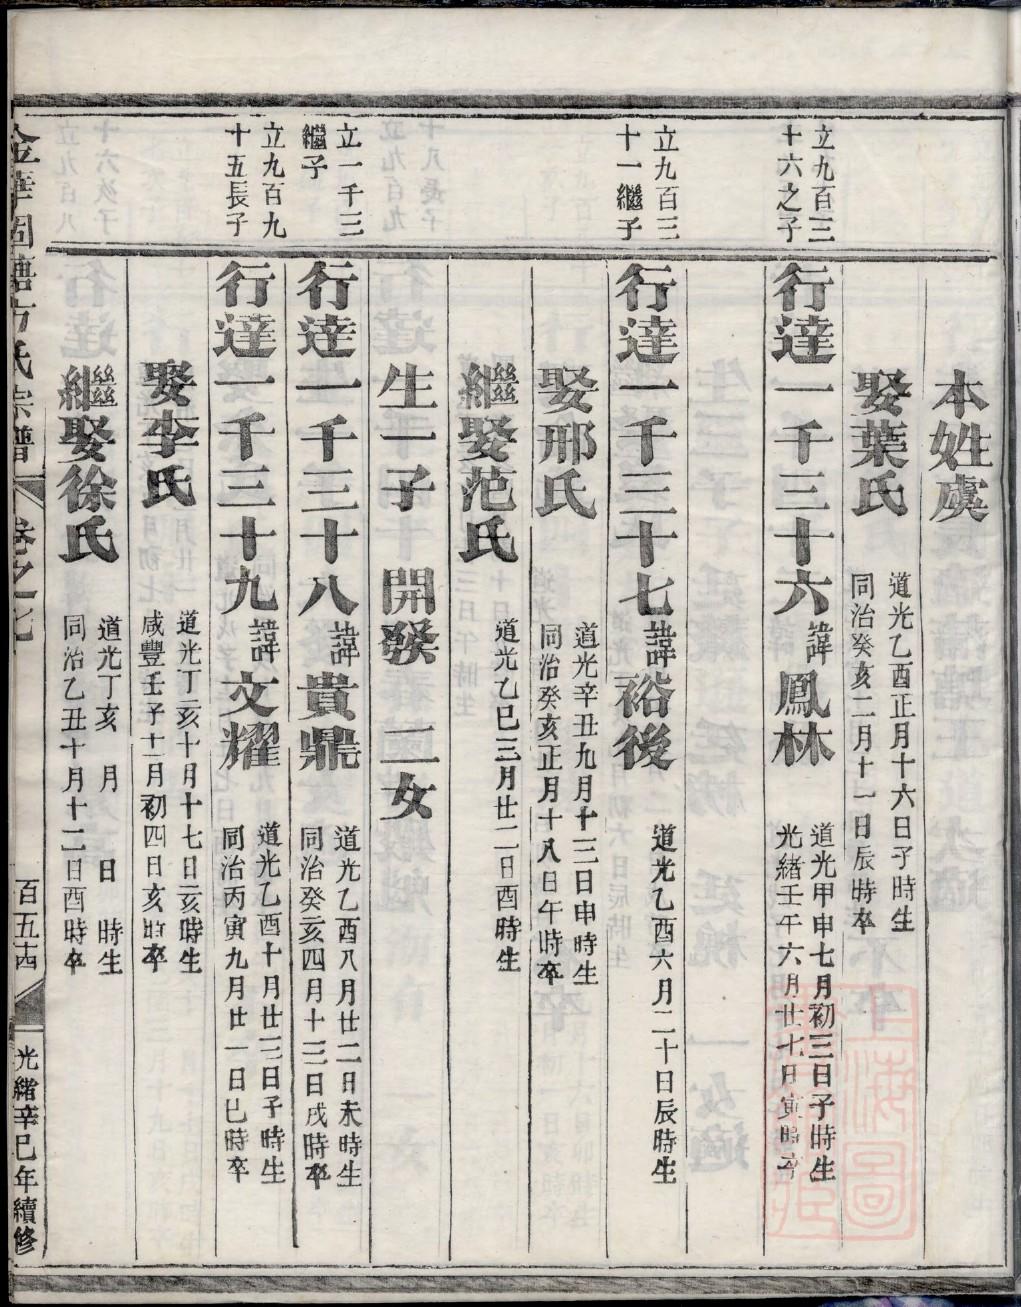 本姓虞
娶葉氏
道光乙酉正月十六日子時生
同治癸亥二月十一日辰時卒
立九百三
十六之子
行達一千三十六諱鳳林
道光甲申七月初三日子時生
光緒壬午六月廿七日寅時卒
立九百三
十一繼子
行達一千三十七諱裕後
道光乙酉六月二十日辰時生
娶邢氏
道光辛丑九月十三日申時生
同治癸亥正月十八日午時卒
繼娶范氏
道光乙巳三月廿二日酉時生
生一子 開發 二女
立一千三
繼子
行達一千三十八諱貴鼎
道光乙酉八月廿二日未時生
同治癸亥四月十三日戌時卒
立九百九
十五長子
行達一千三十九諱文耀
道光乙酉十月廿三日子時生
同治丙寅九月廿一日巳時卒
娶李氏
道光丁亥十月十七日亥時生
咸豐壬子十一月初四日亥時卒
繼娶徐氏
道光丁亥 月 日 時生
同治乙丑十月十二日酉時卒
金華固塘方氏宗譜
卷之七
百五十四
光緒辛巳年續修